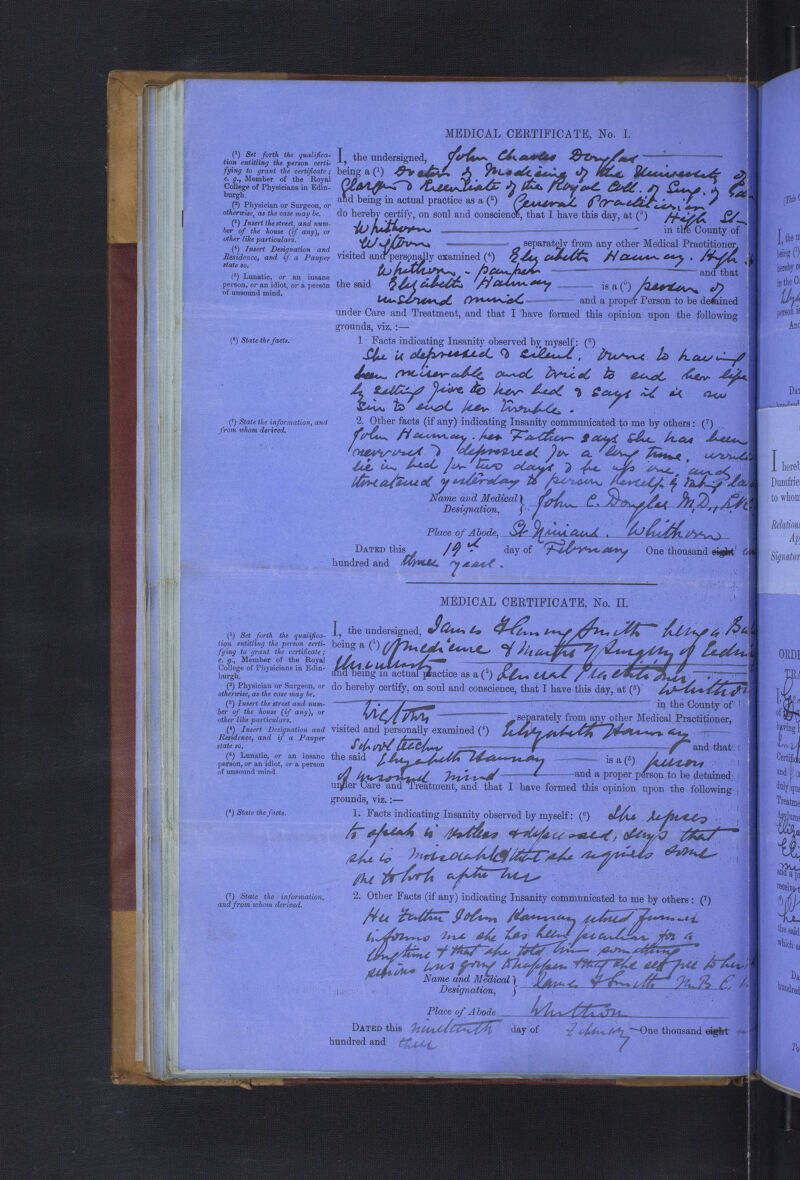 MEDICAL CERTIFICATE, No. I.
(¹) Set forth the qualifica-
tion entitling the person certi-
fying to grant the certificate;
e. g., Member of the Royal
College of Physicians in Edin-
burgh.
(²) Physician or Surgeon, or
otherwise, as the case may be.
(³) Insert the street, and num-
ber of the house (if any), or
other like particulars.
(⁴) Insert Designation and
Residence, and if a Pauper
state so.
(⁵) Lunatic, or an insane
person, or an idiot, or a person
of unsound mind.
I, the undersigned, John Charles Douglas
being a (¹) Doctor of Medicine of the University of
Glasgow & Licentiate of the Royal Coll. of Surg. of Ed
and being in actual practice as a (²) General Practitioner
do hereby certify, on soul and conscience, that I have this day, at (³) High St
Whithorn in the County of
Wigtown separately from any other Medical Practitioner,
visited and personally examined (⁴) Elizabeth Hannay. High
Whithorn - pauper and that
the said Elizabeth Hannay is a (⁵) person of
unsound mind and a proper Person to be detained
under Care and Treatment, and that I have formed this opinion upon the following
grounds, viz. :—
(⁶) State the facts.
1 Facts indicating Insanity observed by myself: (⁶)
She is depressed & silent. Owns to having
been miserable and tried to end her life
by setting fire to her bed & says it is no
sin to end her trouble.
(⁷) State the information, and
from whom derived.
2. Other facts (if any) indicating Insanity communicated to me by others: (⁷)
John Hannay. her Father says she has been
nervous & depressed for a long time. would
lie in bed for two days & be up one, and
threatened yesterday to poison herself by taking
Name and Medical
Designation, John C. Douglas M.D.,
Place of Abode, St Ninians. Whithorn
DATED this 19th day of February One thousand eight
hundred and three years.
MEDICAL CERTIFICATE, No. II.
(¹) Set forth the qualifica-
tion entitling the person certi-
fying to grant the certificate;
e. g., Member of the Royal
College of Physicians in Edin-
burgh.
(²) Physician or Surgeon, or
otherwise, as the case may be.
(³) Insert the street and num-
ber of the house (if any), or
other like particulars.
(⁴) Insert Designation and
Residence, and if a Pauper
state so.
(⁵) Lunatic, or an insane
person, or an idiot, or a person
of unsound mind
I, the undersigned, James Fleming Smith being a
being a (¹) of medicine & Master of Surgery of Edin
University
and being in actual practice as a (²) General Practitioner
do hereby certify, on soul and conscience, that I have this day, at (³) Whithorn
in the County of
Wigtown separately from any other Medical Practitioner,
visited and personally examined (⁴) Elizabeth Hannay
School teacher and that
the said Elizabeth Hannay is a (⁵) person
of unsound mind and a proper person to be detained
under Care and Treatment, and that I have formed this opinion upon the following
grounds, viz. :—
(⁶) State the facts.
1. Facts indicating Insanity observed by myself: (⁶) She refuses
to speak is restless & depressed, says that
she is miserable & that she requires some
one to look after her
(⁷) State the information,
and from whom derived.
2. Other Facts (if any) indicating Insanity communicated to me by others: (⁷)
Her Father John Hannay retired farmer
informs me she has been peculiar for a
long time & that she told him something
serious was going to happen & that she set fire to her
Name and Medical
Designation, James F Smith M.B. C.
Place of Abode Whithorn
DATED this nineteenth day of February One thousand eight
hundred and three